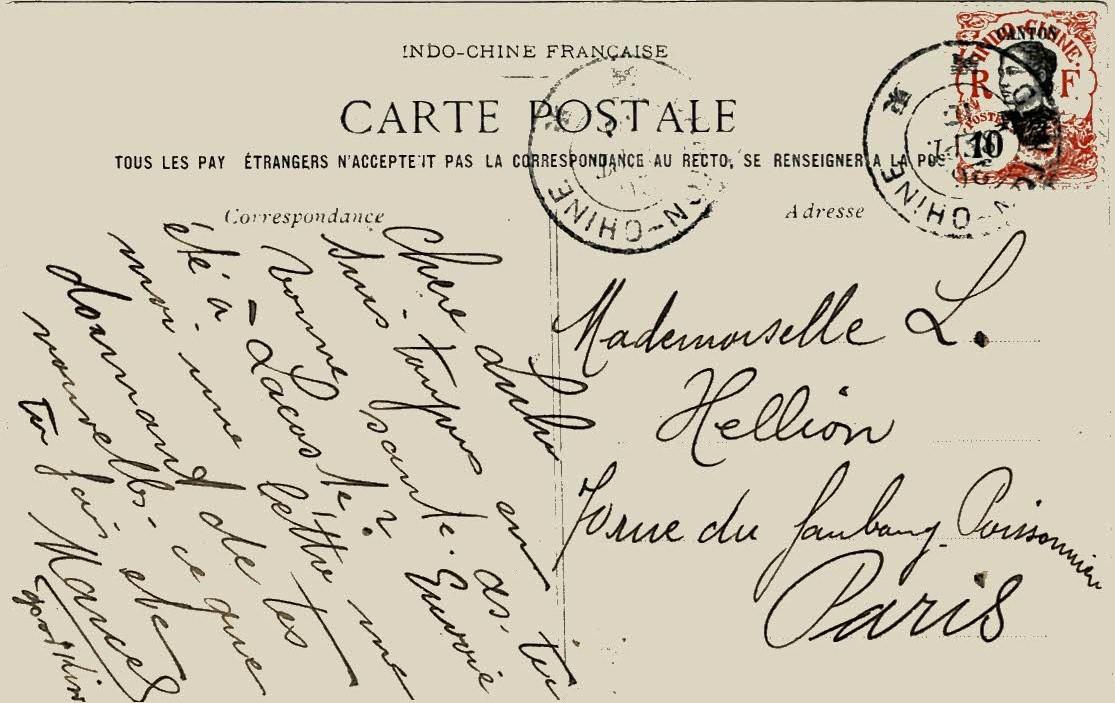 INDO-CHINE FRANÇAISE
CARTE POSTALE
TOUS LES PAY ÉTRANGERS N'ACCEPTE'IT PAS LA CORRESPONDANCE AU RECTO, SE RENSEIGNER A LA POS
Correspondance
Chère
suis toujours en
bonne santé. as-tu
été à - Lacoste? Envoie
moi une lettre me
donnant de tes
nouvelles - ce que
tu fais etc
Marcel
Adresse
Mademoiselle L.
Hellion
70 rue du faubourg Poissonnière
Paris
INDO-CHINE
CANTON
R F
POSTES
10
CHINE
CHINE